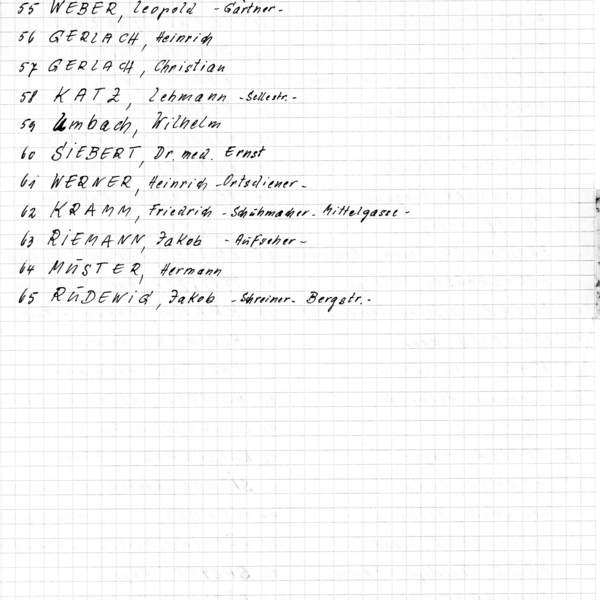 55 WEBER, Leopold - Gärtner -
56 GERLACH, Heinrich
57 GERLACH, Christian
58 KATZ, Lehmann - Sellestr. -
59 Umbach, Wilhelm
60 SIEBERT, Dr. med. Ernst
61 WERNER, Heinrich - Ortsdiener -
62 KRAMM, Friedrich - Schühmacher - Mittelgasse -
63 RIEMANN, Jakob - Aufseher -
64 MÜSTER, Hermann
65 RÜDEWIG, Jakob - Schreiner - Bergstr. -